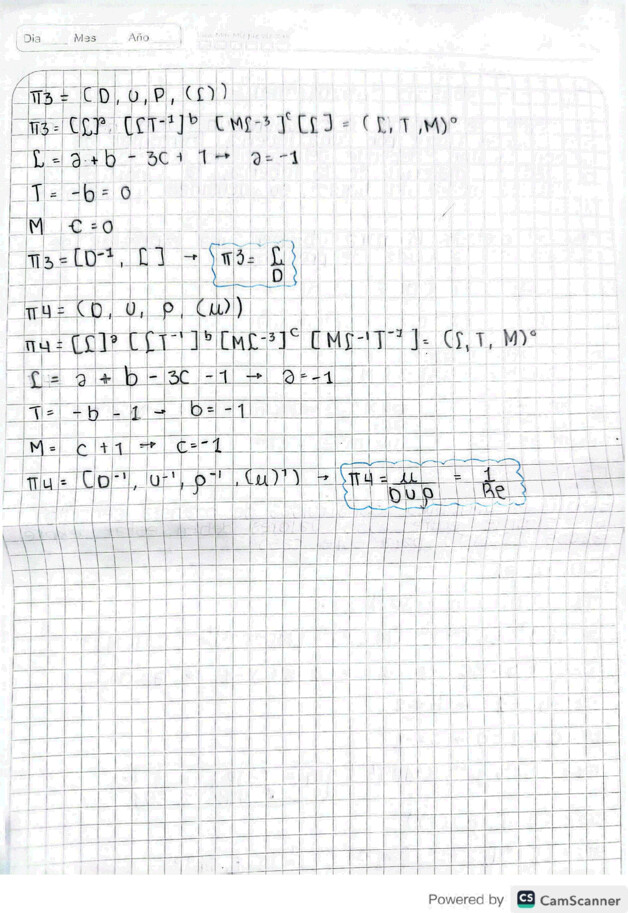 Día Mes Año
π3 = (D, U, P, (L))
π3 = [L]ᵃ [LT⁻¹]ᵇ [ML⁻³]ᶜ [L] = (L, T, M)°
L = a + b - 3c + 1 → a = -1
T = -b = 0
M c = 0
π3 = [D⁻¹, L] → π3 = L/D
π4 = (D, U, ρ, (μ))
π4 = [L]ᵃ [LT⁻¹]ᵇ [ML⁻³]ᶜ [ML⁻¹T⁻¹] = (L, T, M)°
L = a + b - 3c - 1 → a = -1
T = -b - 1 → b = -1
M = c + 1 → c = -1
π4 = (D⁻¹, U⁻¹, ρ⁻¹, (μ)¹) → π4 = μ/DUρ = 1/Re
Powered by CS CamScanner